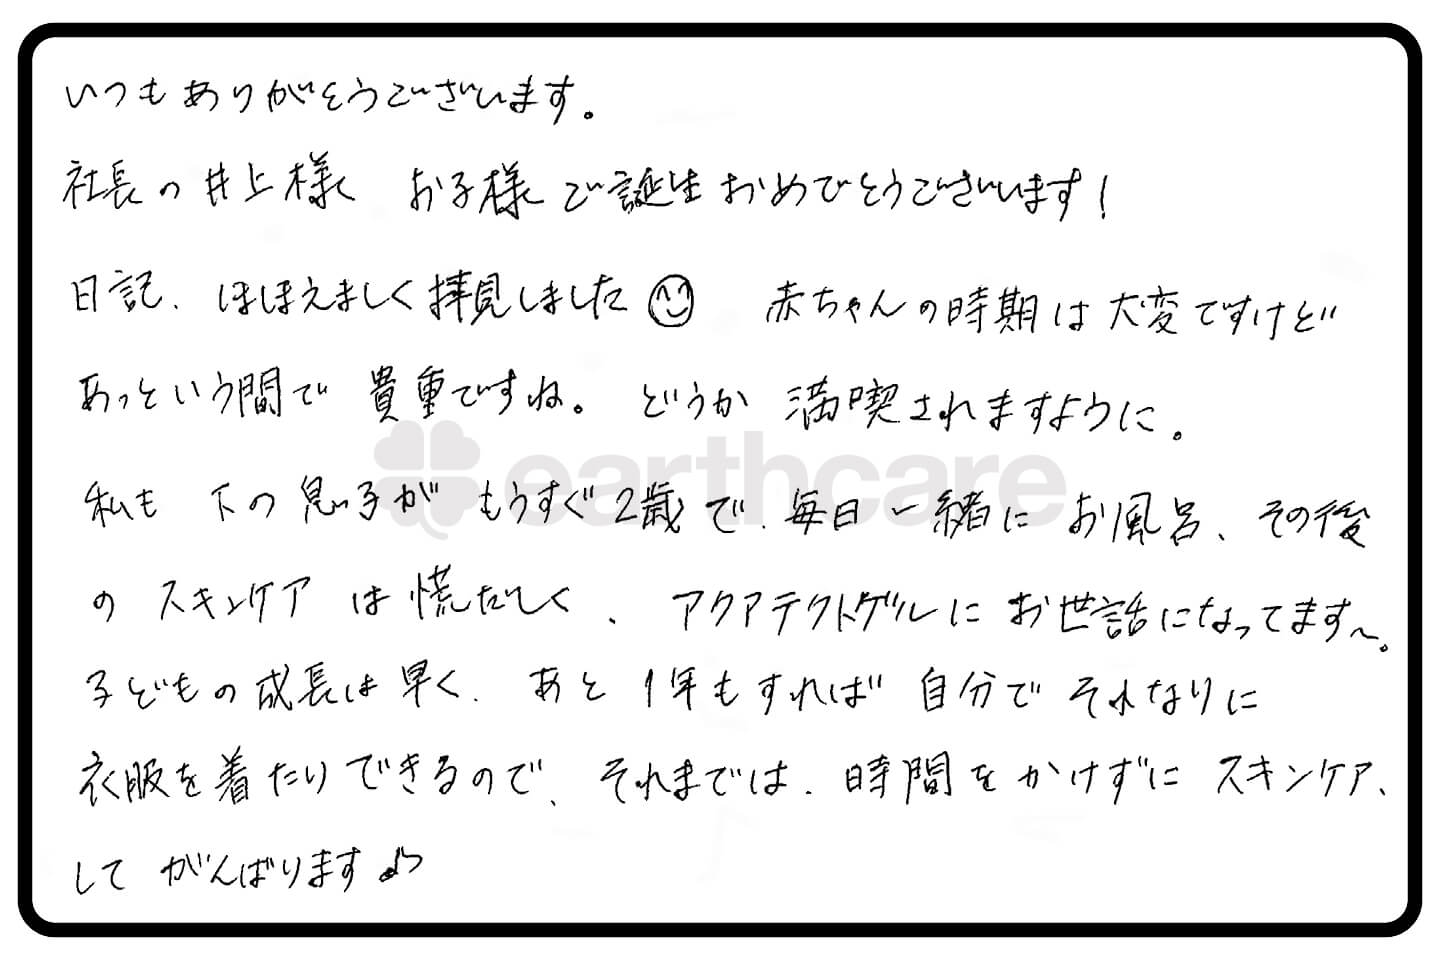 いつもありがとうございます。
社長の井上様 お子様ご誕生おめでとうございます！
日記、ほほえましく拝見しました😊 赤ちゃんの時期は大変ですけど
あっという間で貴重ですね。どうか満喫されますように。
earthcare
私も下の息子がもうすぐ2歳で、毎日一緒にお風呂、その後
のスキンケアは慌だしく、アクアテクトゲルにお世話になってます〜。
子どもの成長は早く、あと1年もすれば自分でそれなりに
衣服を着たりできるので、それまでは、時間をかけずにスキンケア、
してがんばります♪